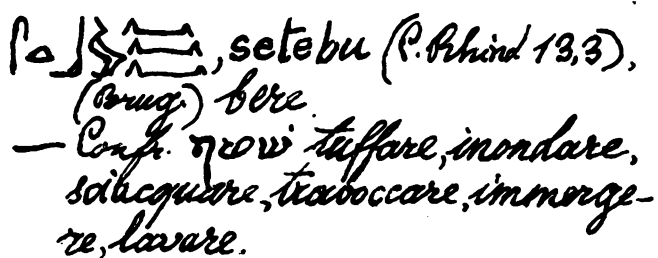 , setebu (P. Rhind 13,3),
(Brug.) bere.
— Confr. שׁטף tuffare, inondare,
sciacquare, traboccare, immerge-
re, lavare.